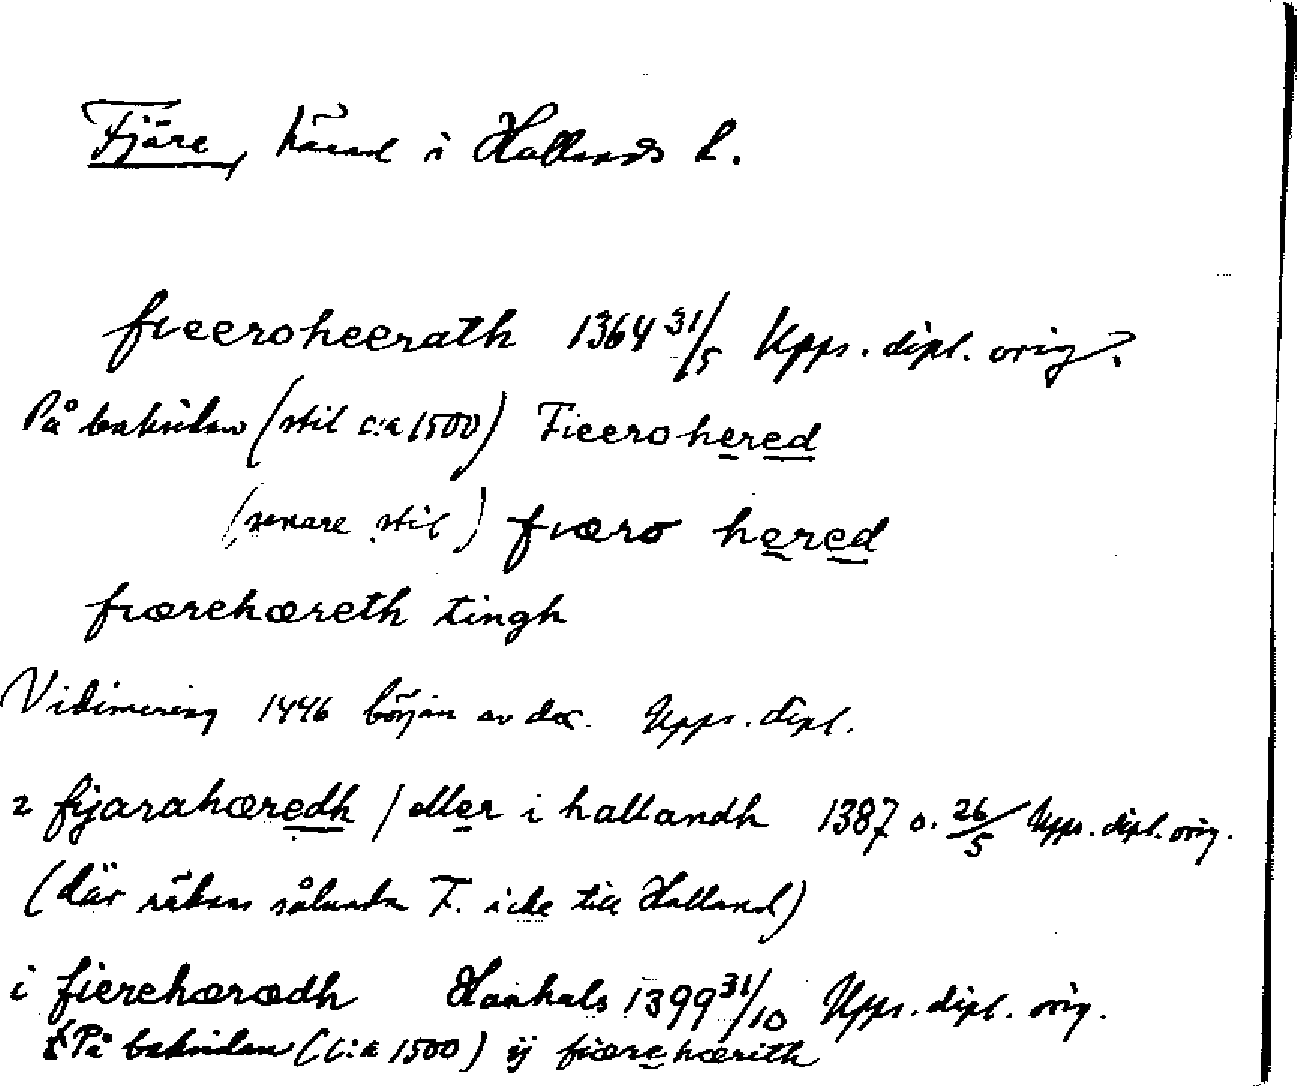 Fjäre, härad i Hallands l.
fiæroheerath 1364 31/5 Upps. dipl. orig.
På baksidan (stil c:a 1500) Fiærohered
(senare stil) fiæro hered
fiærehæreth tingh
Vidimering 1446 början av dec. Upps. dipl.
i fijarahæredh / eller i hallandh 1387 o. 26/5 Upps. dipl. orig.
(där räknas sålunda F. icke till Halland)
i fierehæradh Hanhals 1399 31/10 Upps. dipl. orig.
På baksidan (c:a 1500) ij fiærehærith